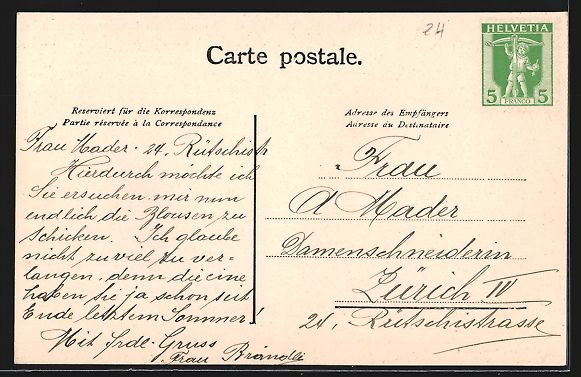 24
HELVETIA
5 FRANCO 5
Carte postale.
Reserviert für die Korrespondenz
Partie réservée à la Correspondance
Adresse des Empfängers
Adresse du Destinataire
Frau Mader. 24, Rütschistr
Hierdurch möchte ich
Sie ersuchen mir nun
endlich die Blousen zu
schicken. Ich glaube
nicht zu viel zu ver=
langen, denn die eine
haben Sie ja schon seit
Ende letztem Sommer!
Mit frdl. Gruss
Frau Brändli
Frau
A Mader
Damenschneiderin
Zürich IV
24, Rütschistrasse